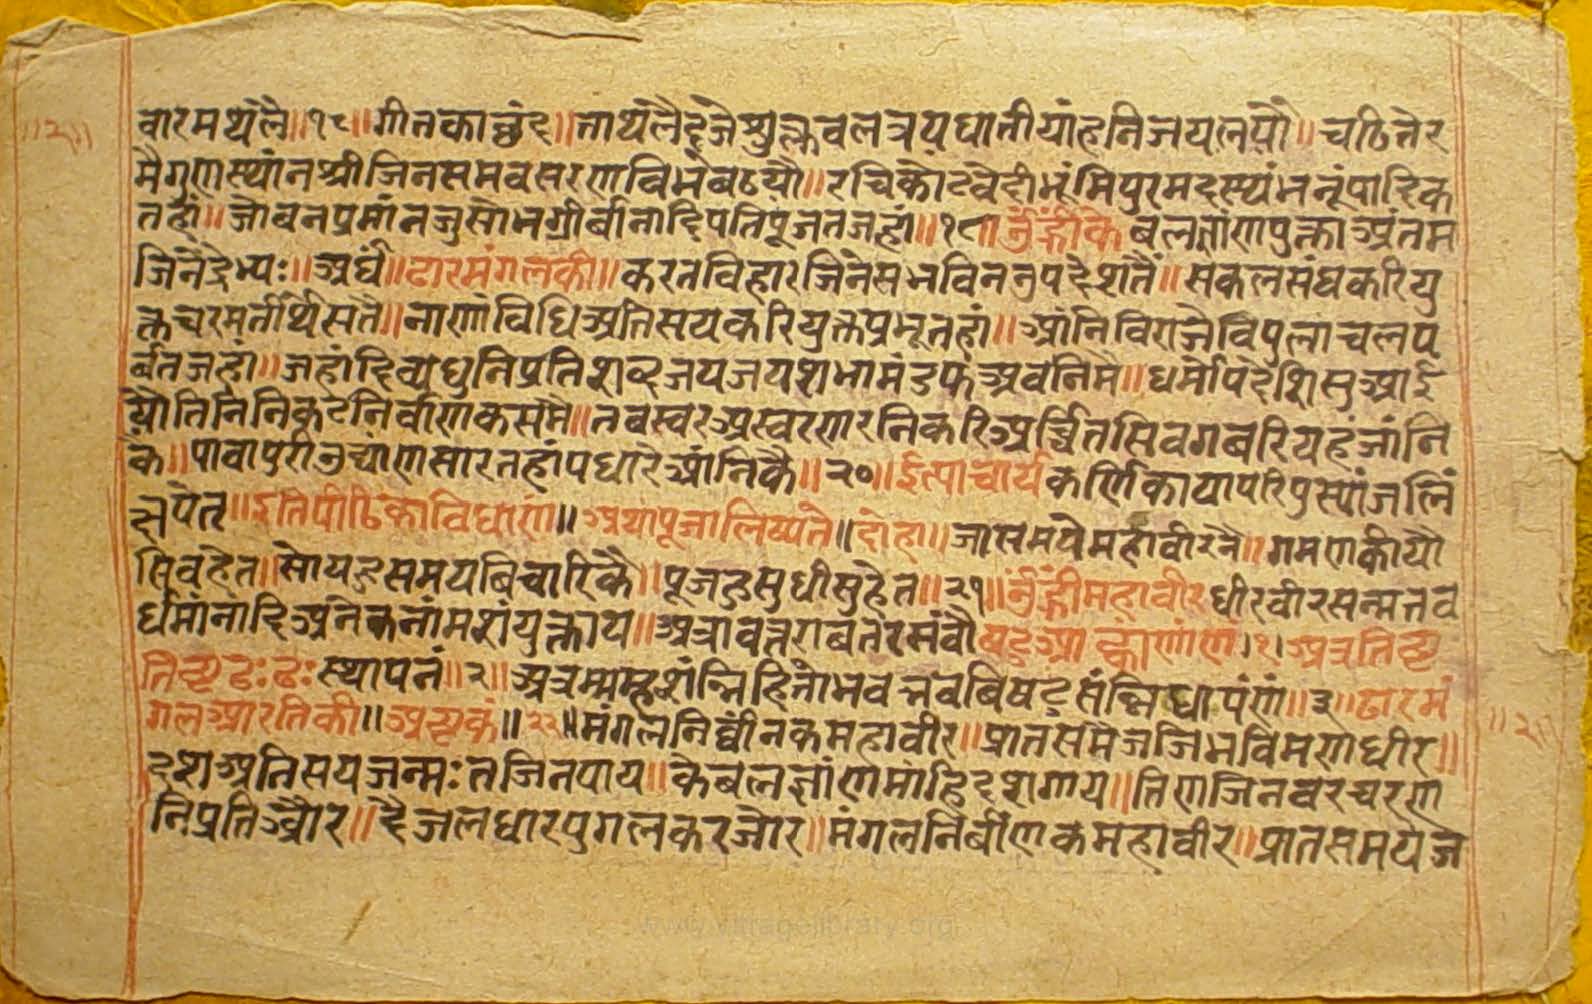 वारमथंलै॥१८॥गीतकाछंद॥नाथंलैदूजेशुक्लवलत्रयघातीयांहनिजयलयौ॥चठितेर
मैगुणस्थांनश्रीजिनसमवसरणविभंबठयौ॥रचिकोटवेदीभूंमिपुरमदस्यंभनूंपादिक
तहां॥जोबनप्रमांनजुसोभगीर्बानादिपतिपूजतजहां॥१९॥ॐह्रींकैबलज्ञांणपुक्ताअंतम
जिनेंद्रेभ्यः॥अर्घं॥ढारमंगलकी॥करतविहारजिनेसभविनउपदेशतैं॥सकलसंघकरियु
क्तचरमतीर्थिसतै॥नाणांविधिअतिसयकरियुक्तप्रभूतहां॥आंनिविराजैविपुलाचलप
र्बतजहां॥जहांदिव्यधुनिप्रतिशब्दजयजयशभामंडफअवनिमै॥धर्मोपदेशिसुआई
यौतिनिनिकटनिर्वाणकसमै॥तवस्वरअस्वरणरनिकरिअर्च्चितसिवगबरियहंजांनि
कै॥पावापुरीउद्यांणसारतहांपधारेआंनिकै॥२०॥ईत्पाचार्यकर्णिकायापरिपुस्पांजलिं
क्षपेत॥इतिपीठिकाविधाणं॥अथपूजालिष्यते॥दोहा॥जासमयेमहावीरनै॥गमणकीयौ
सिवहेत॥सोयहुसमयबिचारिकै॥पूजहुसुधीसुहेत॥२१॥ॐह्रींमहावीरधीरवीरसन्मत्तव
र्धमांनादिअनेकनांमशंयुक्ताय॥अत्रावत्तरावतरसंवौषट्आह्वांणंणं।१।अत्रतिष्ट
तिष्टठःठःस्थापनं॥२॥अत्रमम्सशंन्निहितोभवत्तवबिषट्संन्निधापंणं॥३॥ढारमं
गलआरतिकी॥अष्टकं॥२२॥मंगलनिर्वांनकमहावीर॥प्रातसमैजजिभविमणधीर॥
दशअतिसयजन्मःतजिनपाय॥केबलज्ञांणमांहिदशगाय॥तिणजिनवरचरण
निप्रतिऔर॥दैजलधारपुगलकरजोर॥मंगलनिर्बांणकमहावीर॥प्रातसमयज
www.vitragilibrary.org